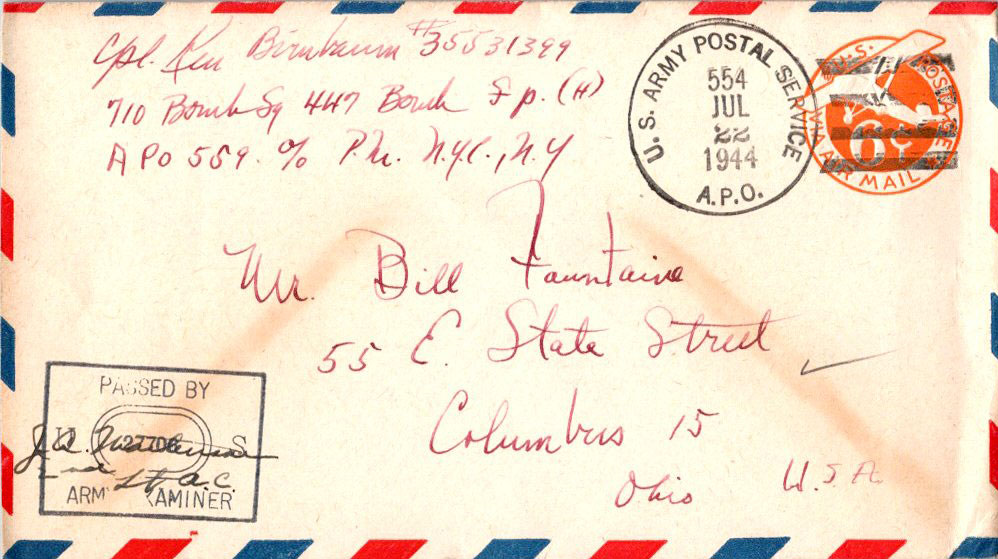 Cpl. Ken Birnbaum #35531399
710 Bomb Sq 447 Bomb Gp. (H)
APO 559. c/o P.M. N.Y.C., N.Y
U.S. ARMY POSTAL SERVICE
554
JUL
22
1944
A.P.O.
U.S. POSTAGE
6¢
VIA AIR MAIL
Mr. Bill Fountaine
55 E. State Street
Columbus 15
Ohio U.S.A.
PASSED BY
U S
ARMY EXAMINER